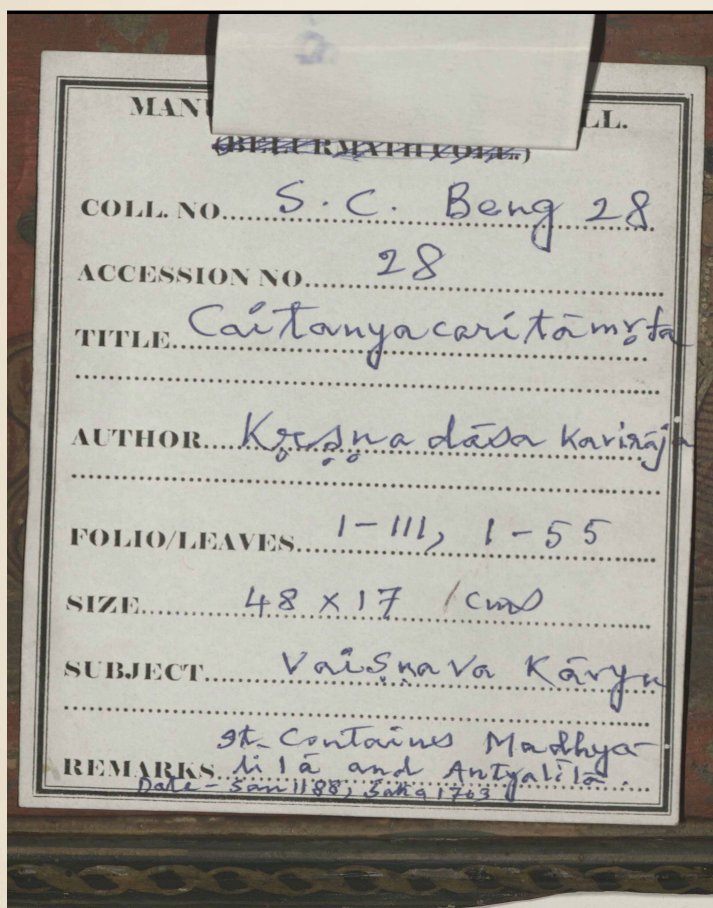 MANU LL.
(BELURMATH COLL.)
COLL. NO. S. C. Beng 28
ACCESSION NO. 28
TITLE. Caitanyacaritāmṛta
AUTHOR. Kṛṣṇadāsa Kavirāja
FOLIO/LEAVES. 1-111, 1-55
SIZE. 48 x 17 / cms
SUBJECT. Vaiṣṇava Kāvya
It Contains Madhya
REMARKS. lilā and Antyalilā.
Date - San 1188, Saka 1703